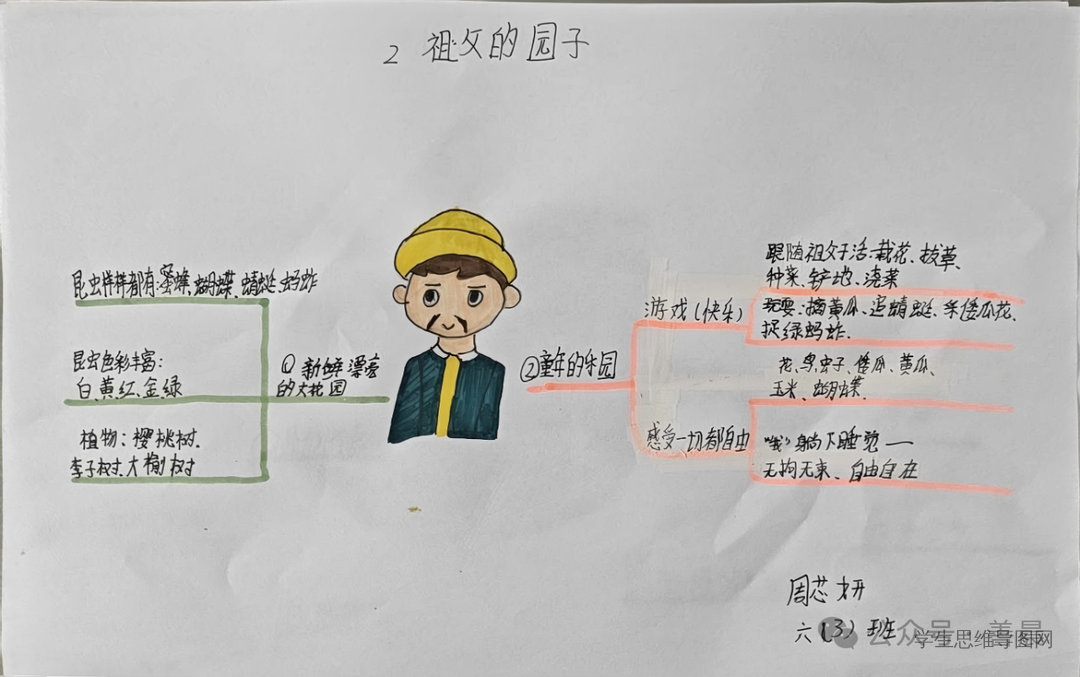 2 祖父的园子
昆虫样样都有:蜜蜂、蝴蝶、蜻蜓、蚂蚱
昆虫色彩丰富:
白、黄、红、金、绿
植物:樱桃树、
李子树、大榆树
①新鲜漂亮
的大花园
②童年的乐园
游戏(快乐)
跟随祖父干活:栽花、拔草、
种菜、铲地、浇菜
玩耍:摘黄瓜、追蜻蜓、采倭瓜花、
捉绿蚂蚱.
感受一切都自由
花、鸟、虫子、倭瓜、黄瓜、
玉米、蝴蝶
"我"躺下睡觉——
无拘无束、自由自在
周芯妍
六(3)班
公众号·美星
学生思维导图网